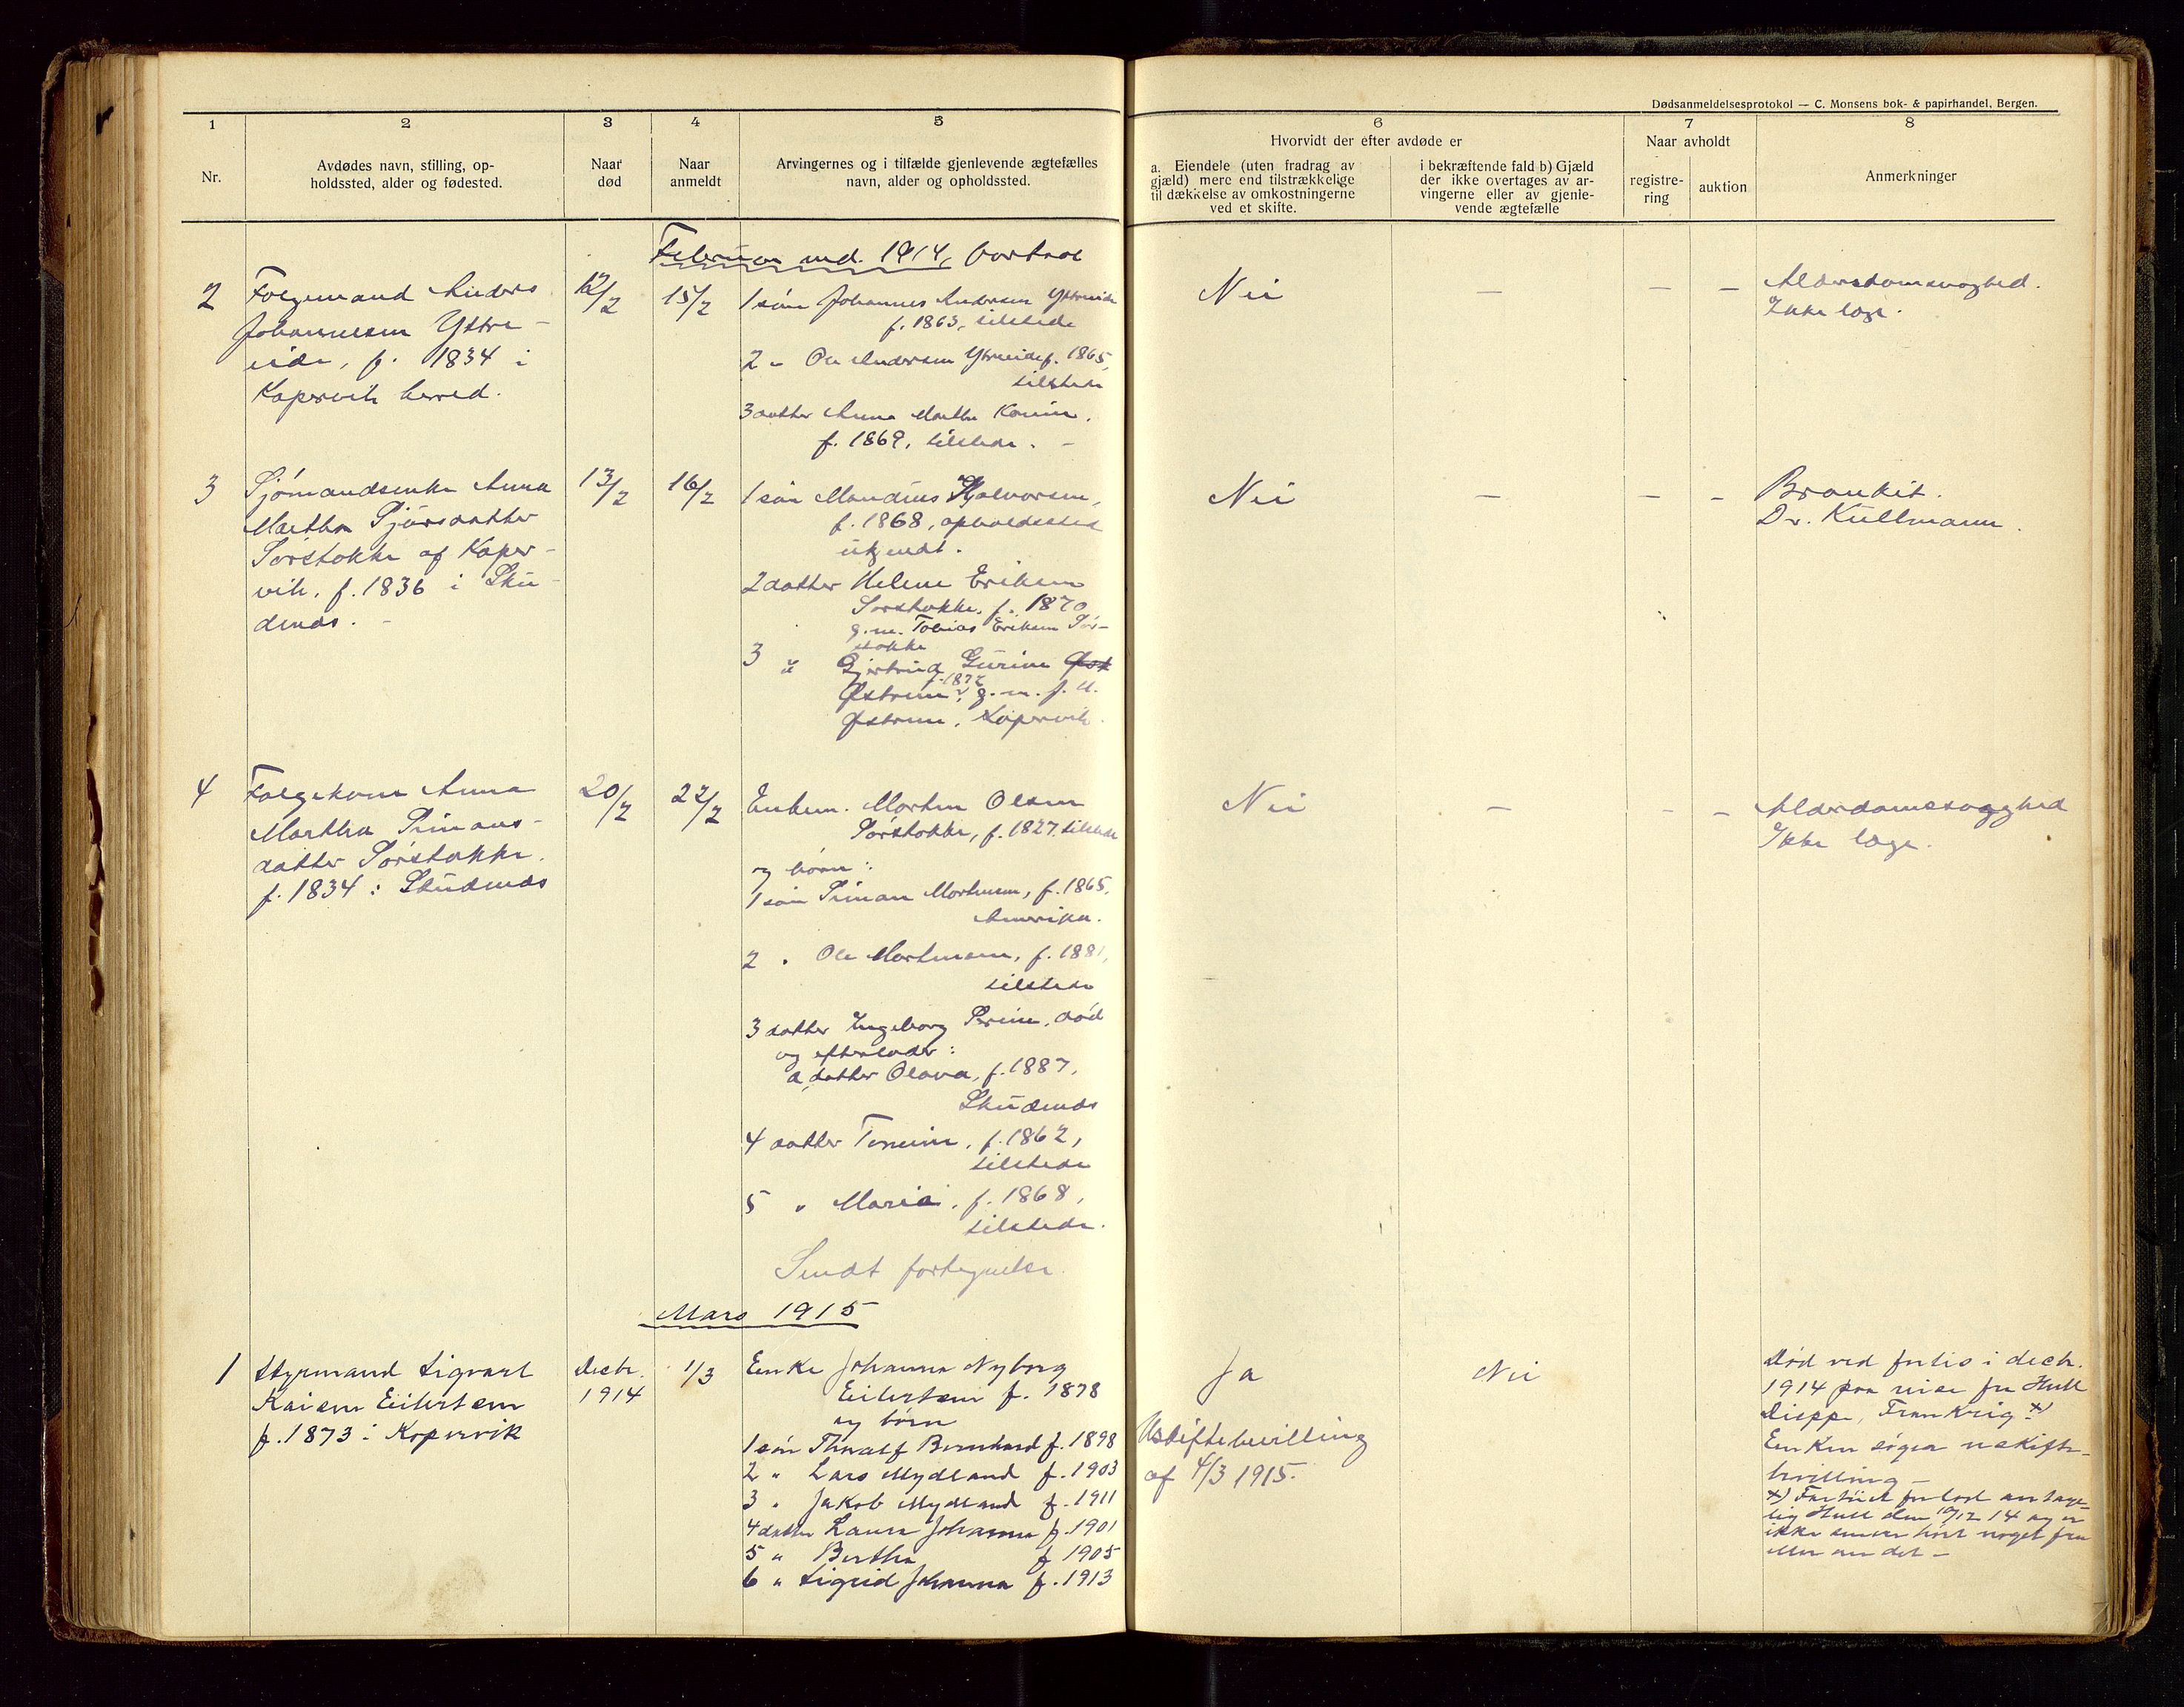 Dødsanmeldelsesprotokol — C. Monsens bok- & papirhandel, Bergen.
1 2 3 4 5 6 7 8
Nr.
Avdødes navn, stilling, op-
holdssted, alder og fødested.
Naar
død
Naar
anmeldt
Arvingernes og i tilfælde gjenlevende ægtefælles
navn, alder og opholdssted.
Hvorvidt der efter avdøde er
a. Eiendele (uten fradrag av
gjæld) mere end tilstrækkelige
til dækkelse av omkostningerne
ved et skifte.
i bekræftende fald b) Gjæld
der ikke overtages av ar-
vingerne eller av gjenle-
vende ægtefælle
Naar avholdt
registre-
ring
auktion
Anmerkninger
Februar md. 1914, fortsat
2
Folgemand Anders
Johannesen Ystre-
eide, f. 1834 i
Kopervik herred.
12/2
15/2
1 søn Johannes Andersen Ystreeide
f. 1863, tilstede
2 " Ole Andersen Ystreeide f. 1865,
tilstede
3 datter Anna Martha Karine,
f. 1869, tilstede. -
Nei
—
—
—
Alderdomssvaghed.
Ikke læge.
3
Sjømandsenke Anna
Martha Sjursdatter
Sørstokke af Koper-
vik, f. 1836 i Sku-
denes. -
13/2
16/2
1 søn Mandius Halvorsen,
f. 1868, opholdssted
ukjendt.
2 datter Helene Eriksen
Sørstokke, f. 1870,
g. m. Tobias Eriksen Sør-
stokke
3 " Gjertrud Gurine
Østrem, f. 1872 g. m. J. U.
Østrem, Kopervik.
Nei
—
—
—
Bronkit.
Dr. Kullmann.
4
Folgekone Anna
Martha Simons-
datter Sørstokke.
f. 1834 i Skudenes
20/2
22/2
Enkem. Morten Olsen
Sørstokke, f. 1827, tilstede
og børn:
1 søn Simon Mortensen, f. 1865,
Amerika.
2 " Ole Mortensen, f. 1881,
tilstede
3 datter Ingeborg Serine, død
og efterlader:
a, datter Olava, f. 1887,
Skudenes
4 datter Tomine, f. 1862,
tilstede
5 " Maria, f. 1868,
tilstede.
Sendt fortegnelse.
Nei
—
—
—
Alderdomssvaghed
Ikke læge.
Mars 1915
1
Styrmand Sigvart
Kaisen Eilertsen
f. 1873 i Kopervik
Decbr.
1914
1/3
Enke Johanna Nyborg
Eilertsen f. 1878
og børn
1 søn Thoralf Bernhard f. 1898
2 " Lars Mydland f. 1903
3 " Jakob Mydland f. 1911
4 datter Laura Johanna f. 1901
5 " Bertha f. 1905
6 " Sigrid Johanna f. 1913
Ja
Uskiftebevilling
af 4/3 1915.
Nei
Død ved forlis i decb.
1914 paa reise fra Hull
Dieppe, Frankrig x)
Enken søger uskifte-
bevilling —
x) Fartøiet forlod antage-
lig Hull den 19/12 14 og er
ikke senere hørt noget fra
eller om det —